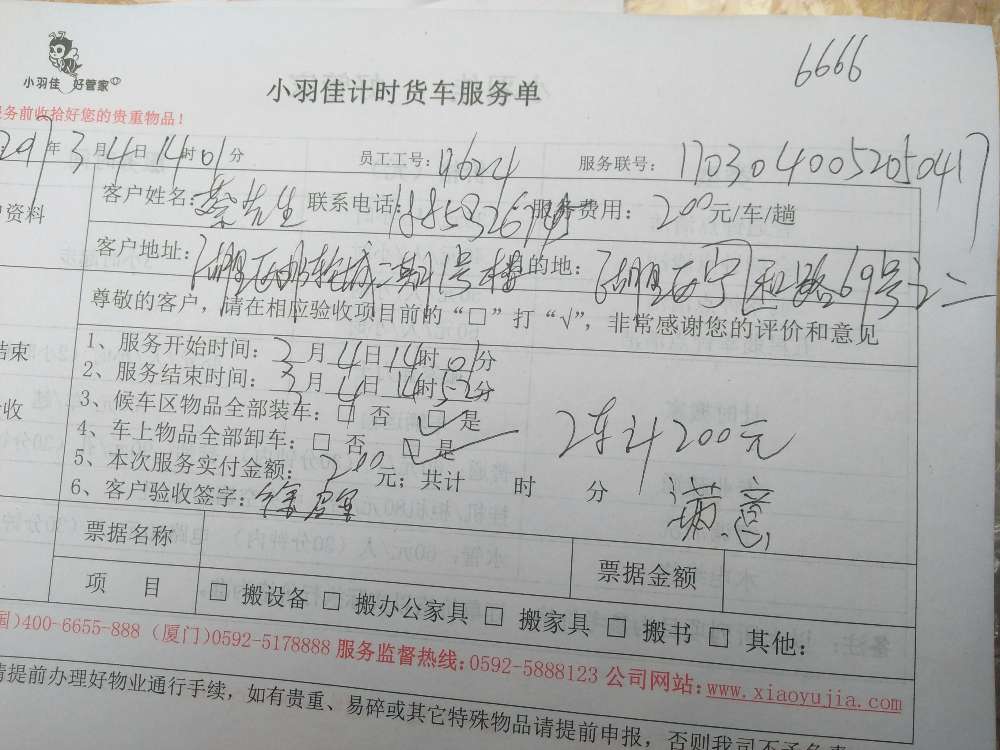 6666
小羽佳 好管家
小羽佳计时货车服务单
务前收拾好您的贵重物品！
年3月4日14时01分 员工工号: 17624 服务联号: 1703040052050417
资料
客户姓名: 蔡先生 联系电话: 服务费用: 200元/车/趟
客户地址: 湖里区 二期1号楼 的地: 湖里区宁和路69号之二
尊敬的客户，请在相应验收项目前的“□”打“√”，非常感谢您的评价和意见
结束
1、服务开始时间: 3月4日14时01分
2、服务结束时间: 3月4日14时52分
收
3、候车区物品全部装车: □ 否 □ 是
4、车上物品全部卸车: □ 否 □ 是
2车计200元
5、本次服务实付金额: 200元; 共计 时 分
6、客户验收签字:
满意
票据名称 票据金额
项 目 □ 搬设备 □ 搬办公家具 □ 搬家具 □ 搬书 □ 其他:
国)400-6655-888 (厦门)0592-5178888 服务监督热线:0592-5888123 公司网站:www.xiaoyujia.com
请提前办理好物业通行手续，如有贵重、易碎或其它特殊物品请提前申报，否则我司不予负责